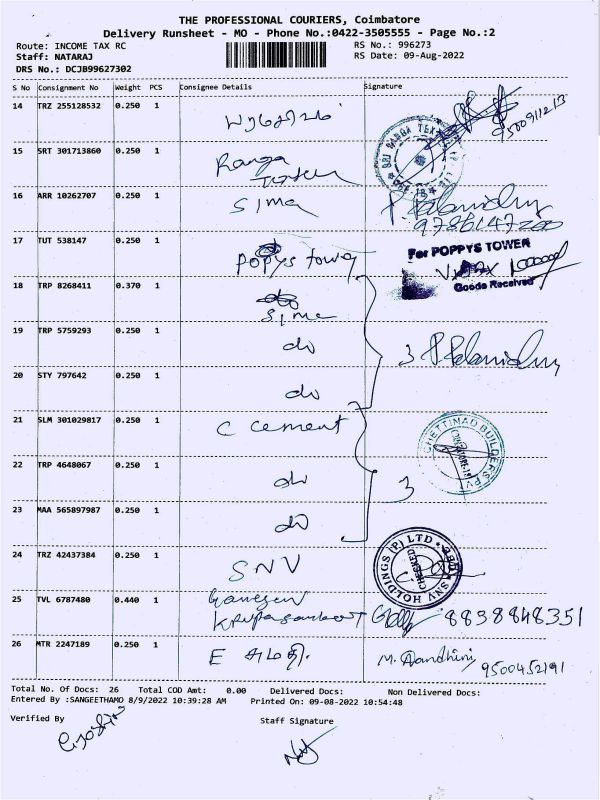 THE PROFESSIONAL COURIERS, Coimbatore
Delivery Runsheet - MO - Phone No.:0422-3505555 - Page No.:2
Route: INCOME TAX RC
RS No.: 996273
Staff: NATARAJ
RS Date: 09-Aug-2022
DRS No.: DCJB99627302
S No Consignment No Weight PCS Consignee Details Signature
14 TRZ 255128532 0.250 1
9500911213
15 SRT 301713860 0.250 1 Ranga
16 ARR 10262707 0.250 1 Sima
9786147200
17 TUT 538147 0.250 1 Poppys tower
For POPPYS TOWER
Goods Received
18 TRP 8268411 0.370 1 Sima
19 TRP 5759293 0.250 1 do 3
20 STY 797642 0.250 1 do
21 SLM 301029817 0.250 1 C cement
CHETTINAD BUILDERS PV
22 TRP 4648067 0.250 1 do 3
23 MAA 565897987 0.250 1 do
24 TRZ 42437384 0.250 1 SNV
SNV HOLDINGS (P) LTD
CHECKED
25 TVL 6787480 0.440 1 Ganesan
8838848351
26 MTR 2247189 0.250 1 E
9500452191
Total No. Of Docs: 26 Total COD Amt: 0.00 Delivered Docs: Non Delivered Docs:
Entered By :SANGEETHAMO 8/9/2022 10:39:28 AM Printed On: 09-08-2022 10:54:48
Verified By
Staff Signature